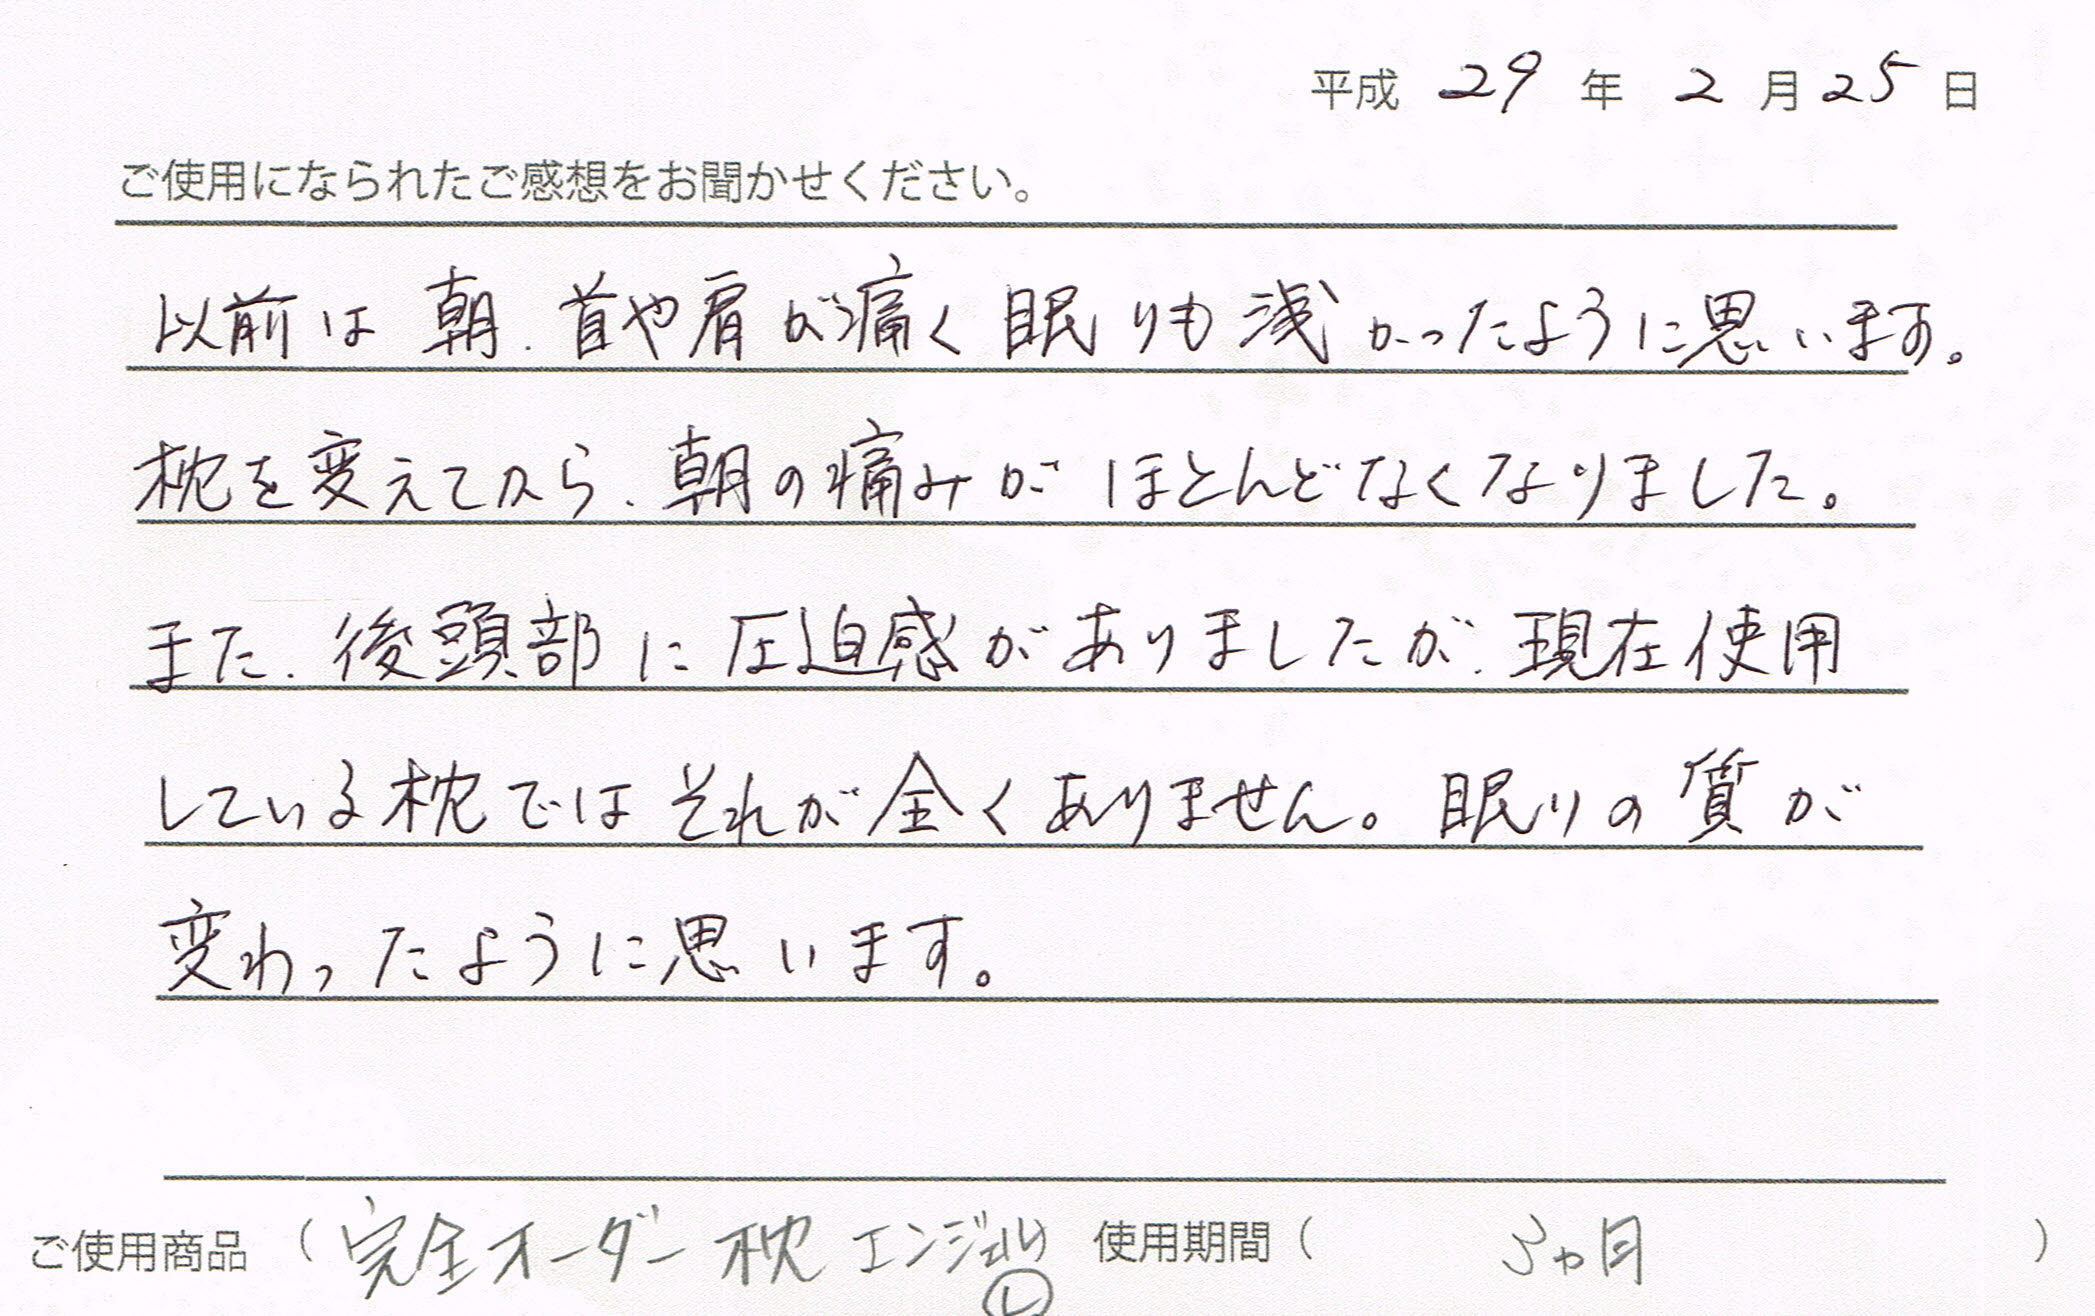 平成 29 年 2 月 25 日
ご使用になられたご感想をお聞かせください。
以前は朝、首や肩が痛く眠りも浅かったように思います。
枕を変えてから、朝の痛みがほとんどなくなりました。
また、後頭部に圧迫感がありましたが、現在使用
している枕ではそれが全くありません。眠りの質が
変わったように思います。
ご使用商品 (完全オーダー枕 エンジェル) 使用期間 ( 3ヵ月 )
Ⓛ